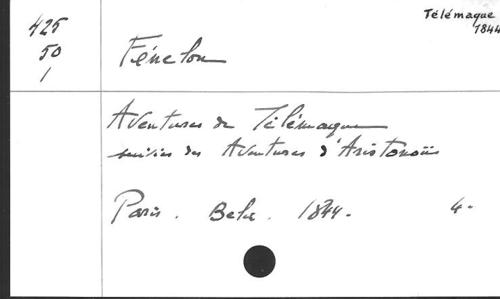 Télémaque
1844
425
50
1
Fénelon
Aventures de Télémaque
suivies des Aventures d'Aristonoüs
Paris. 1844. 4-